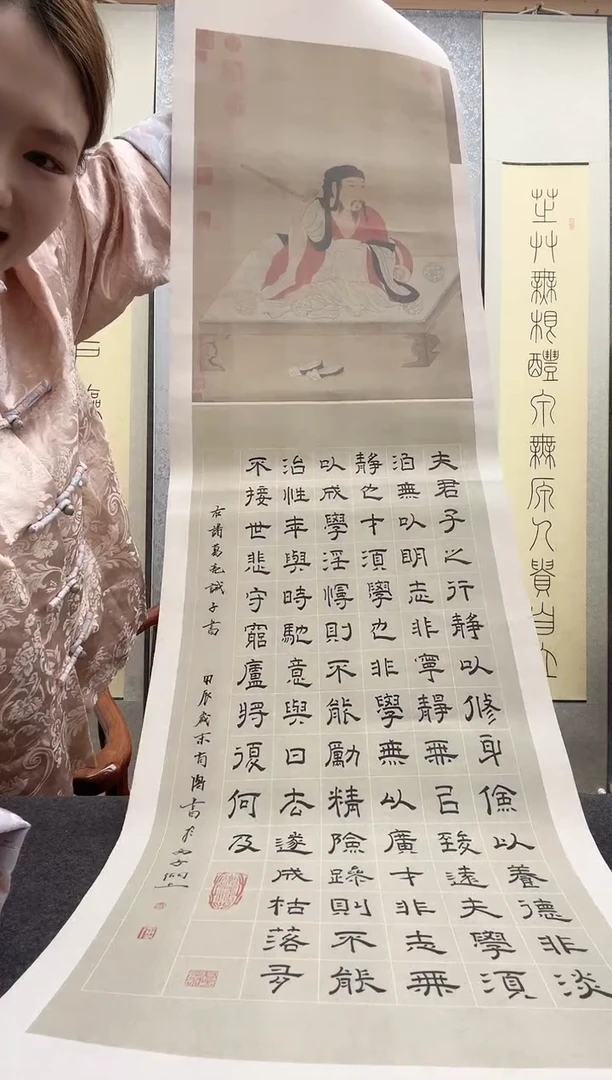 夫君子之行静以修身儉以養德非淡
泊無以明志非寧靜無以致遠夫學須
静也才須學也非學無以廣才非志無
以成學淫慢則不能勵精險躁則不能
治性年與時馳意與日去遂成枯落多
不接世悲守窮廬將復何及
右諸葛亮誡子書
甲辰歲末
芝艸無根醴泉無原人貴自立